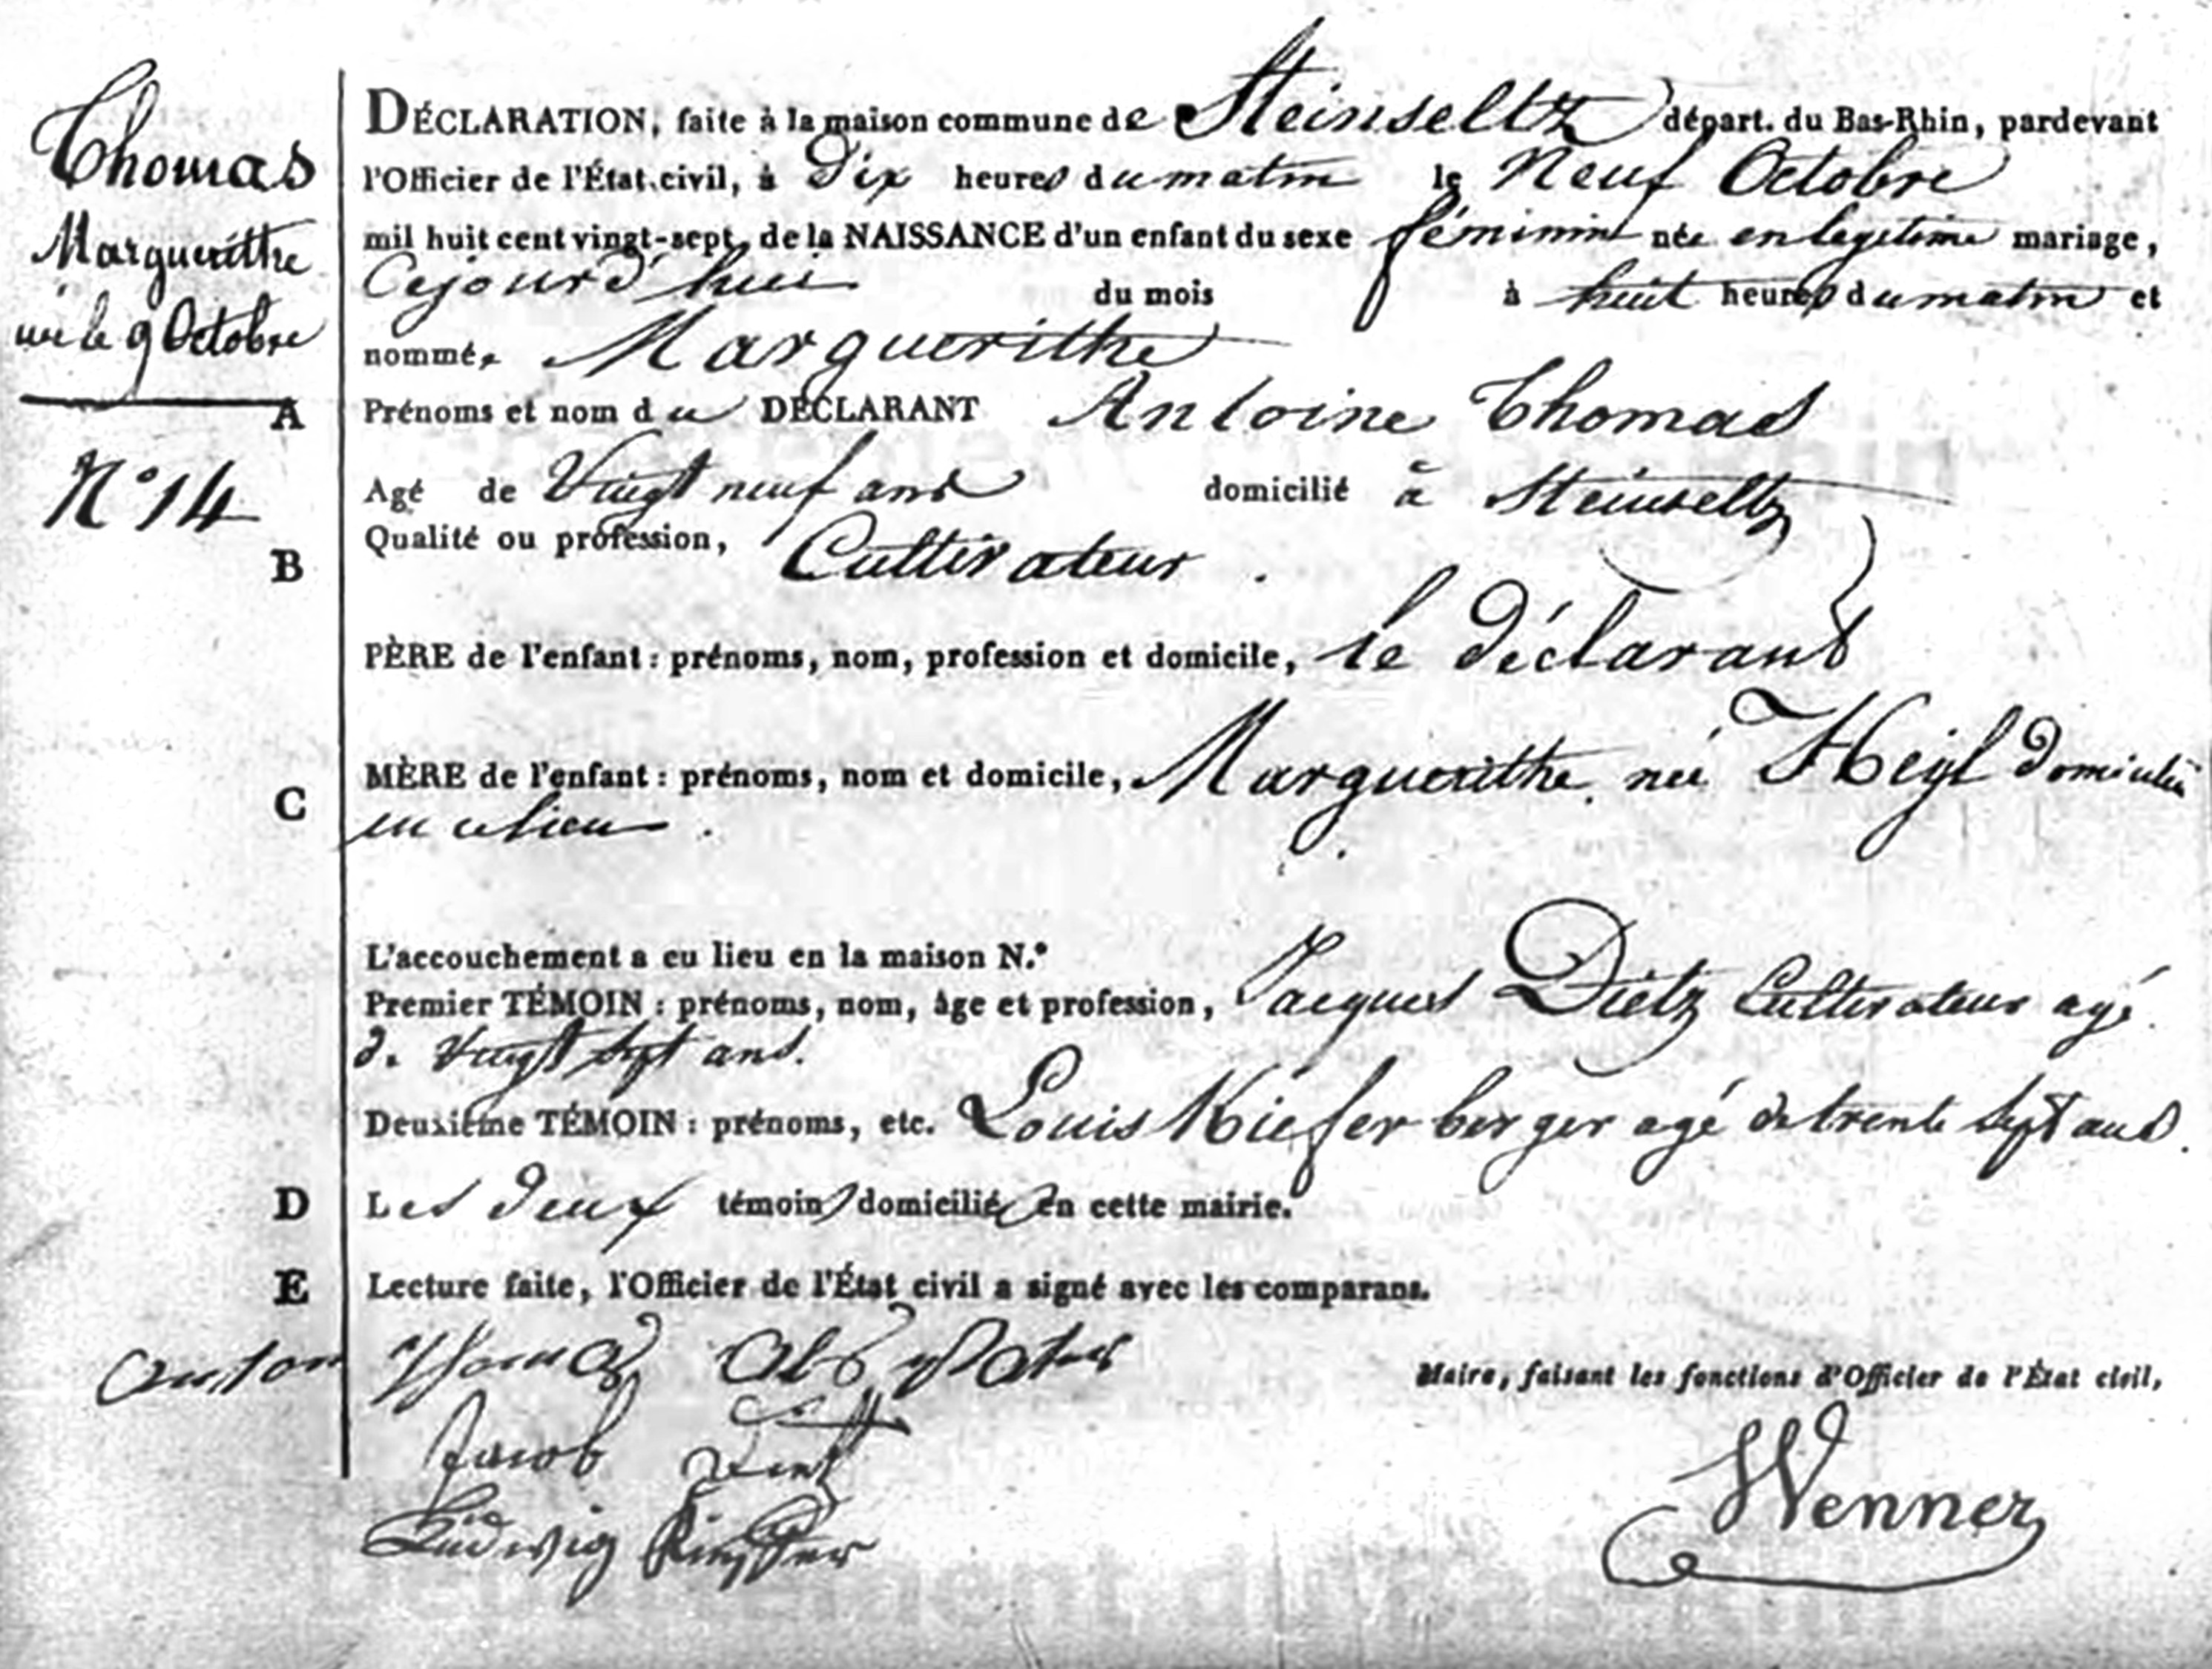 Thomas
Marguerithe
né le 9 Octobre
A
N° 14
B
C
D
E
DÉCLARATION, faite à la maison commune de Steinseltz départ. du Bas-Rhin, pardevant
l'Officier de l'État civil, à Dix heures du matin le Neuf Octobre
mil huit cent vingt-sept, de la NAISSANCE d'un enfant du sexe féminin née en legitime mariage,
Cejourd'hui du mois à huit heures du matin et
nommée Marguerithe
Prénoms et nom du DÉCLARANT Antoine Thomas
Agé de Vingt neuf ans domicilié à Steinseltz
Qualité ou profession, Cultivateur.
PÈRE de l'enfant : prénoms, nom, profession et domicile, le déclarant
MÈRE de l'enfant : prénoms, nom et domicile, Marguerithe née Heyl domiciliée
en ce lieu.
L'accouchement a eu lieu en la maison N.°
Premier TÉMOIN : prénoms, nom, âge et profession, Jacques Dietz Cultivateur agé
de Vingt sept ans.
Deuxième TÉMOIN : prénoms, etc. Louis Kiefer berger agé de trente sept ans.
Les deux témoins domiciliés en cette mairie.
Lecture faite, l'Officier de l'État civil a signé avec les comparans.
Anton Thomas als Vater
Maire, faisant les fonctions d'Officier de l'État civil,
Jacob Dietz
Ludwig Kieffer
Wenner